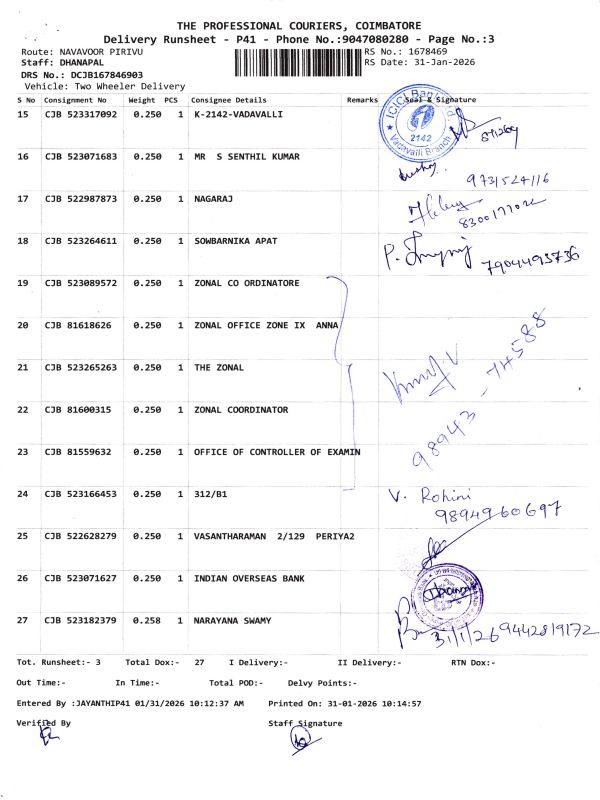 THE PROFESSIONAL COURIERS, COIMBATORE
Delivery Runsheet - P41 - Phone No.:9047080280 - Page No.:3
Route: NAVAVOOR PIRIVU RS No.: 1678469
Staff: DHANAPAL RS Date: 31-Jan-2026
DRS No.: DCJB167846903
Vehicle: Two Wheeler Delivery
S No Consignment No Weight PCS Consignee Details Remarks Seal & Signature
15 CJB 523317092 0.250 1 K-2142-VADAVALLI
ICICI Bank Ltd. 2142 Vadavalli Branch
16 CJB 523071683 0.250 1 MR S SENTHIL KUMAR
9731524116
17 CJB 522987873 0.250 1 NAGARAJ
8300177022
18 CJB 523264611 0.250 1 SOWBARNIKA APAT
7904493736
19 CJB 523089572 0.250 1 ZONAL CO ORDINATORE
20 CJB 81618626 0.250 1 ZONAL OFFICE ZONE IX ANNA
21 CJB 523265263 0.250 1 THE ZONAL
22 CJB 81600315 0.250 1 ZONAL COORDINATOR
98943
23 CJB 81559632 0.250 1 OFFICE OF CONTROLLER OF EXAMIN
24 CJB 523166453 0.250 1 312/B1 V. Rohini
9894960697
25 CJB 522628279 0.250 1 VASANTHARAMAN 2/129 PERIYA2
26 CJB 523071627 0.250 1 INDIAN OVERSEAS BANK
27 CJB 523182379 0.258 1 NARAYANA SWAMY
31/1/26 9442819172
Tot. Runsheet:- 3 Total Dox:- 27 I Delivery:- II Delivery:- RTN Dox:-
Out Time:- In Time:- Total POD:- Delvy Points:-
Entered By :JAYANTHIP41 01/31/2026 10:12:37 AM Printed On: 31-01-2026 10:14:57
Verified By Staff Signature